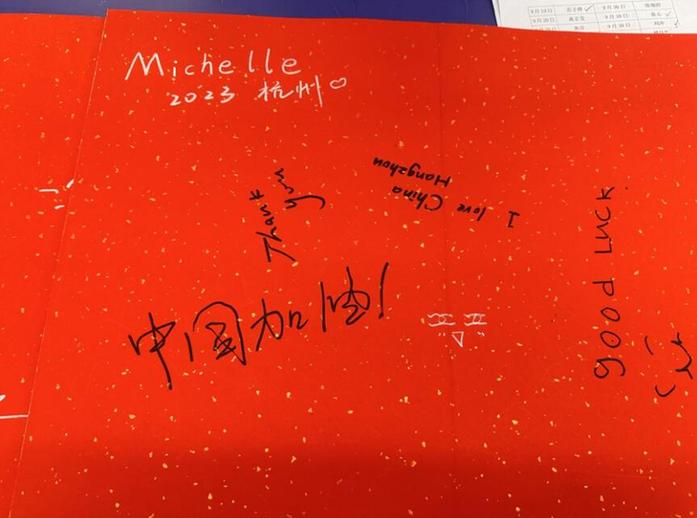 Michelle
2023 杭州
Thank
you
I love China
Hangzhou
good Luck
中国加油!